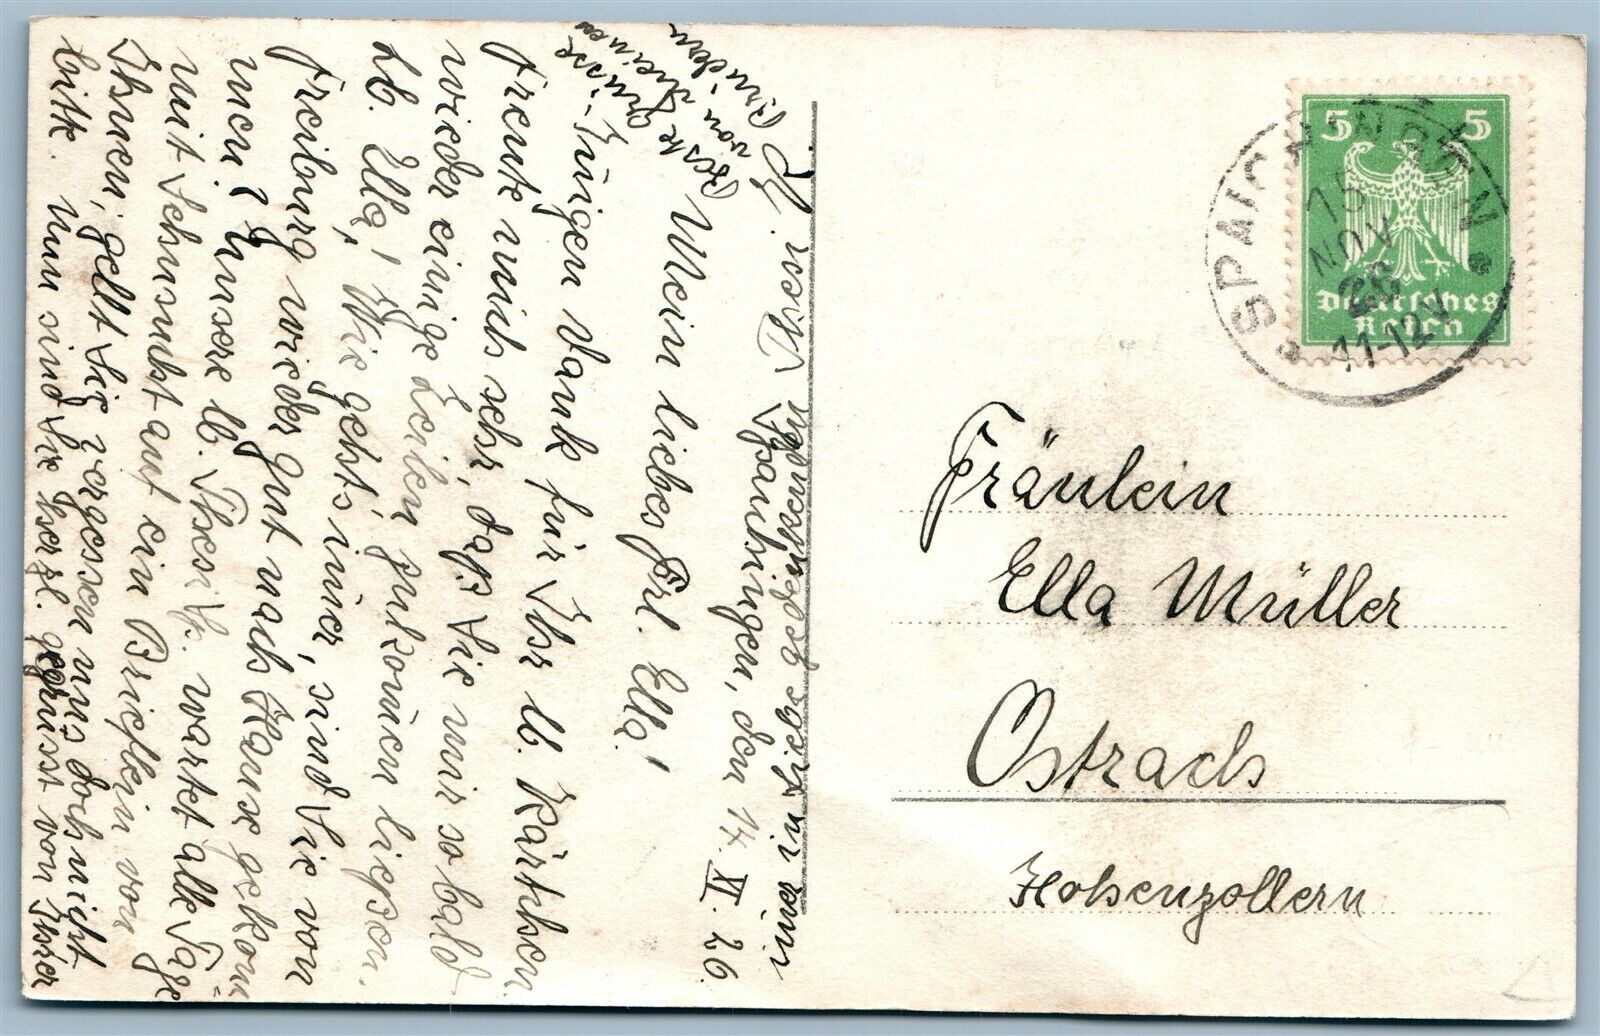 Spaichingen, den 14. XI. 26.
Mein liebes Frl. Ella!
Innigen Dank für Ihr lb. Kärtchen.
Freute mich sehr, daß Sie mir so bald
wieder einige Zeilen zukom̅en ließen.
Lb. Ella, Wie gehts im̅er, sind Sie von
Freiburg wieder gut nach Hause gekom̅
men? Unsere lb. Thesi wartet alle Tage
mit Sehnsucht auf ein Brieflein von
Ihnen, gellt Sie vergessen uns doch nicht
bitte. Nun sind Sie herzl. gegrüsst von Ihrer
im̅er in Liebe gedenkenden
Beste Grüsse
von meinen
Brüdern
SPAICHINGEN
15 NOV 26
11-12V
5 5
Deutsches
Reich
Fräulein
Ella Müller
Ostrach
Hohenzollern